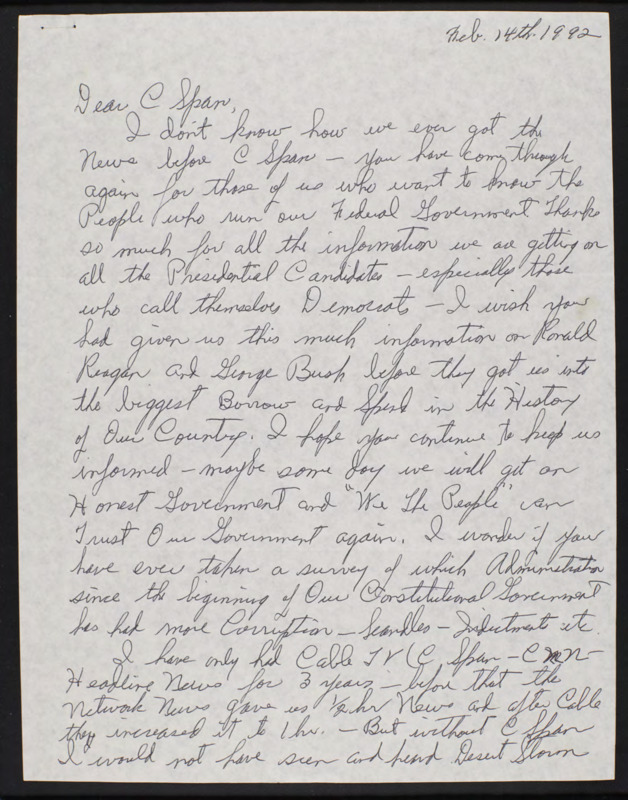 Feb. 14th. 1992
Dear C Span,
I don't know how we ever got the
News before C Span - you have come through
again for those of us who want to know the
People who run our Federal Government Thanks
so much for all the information we are getting on
all the Presidential Candidates - especially those
who call themselves Democrats - I wish you
had given us this much information on Ronald
Reagan and George Bush before they got us into
the biggest Borrow and Spend in the History
of Our Country. I hope you continue to keep us
informed - maybe some day we will get an
Honest Government and "We The People" can
Trust Our Government again. I wonder if you
have ever taken a survey of which Administration
since the beginning of Our Constitutional Government
has had more Corruption - Scandles - Indictment etc.
I have only had Cable TV (C Span - CNN -
Headline News for 3 years - before that the
Network News gave us ½ hr News and after Cable
they increased it to 1 hr. - But without C Span
I would not have seen and heard Desert Storm